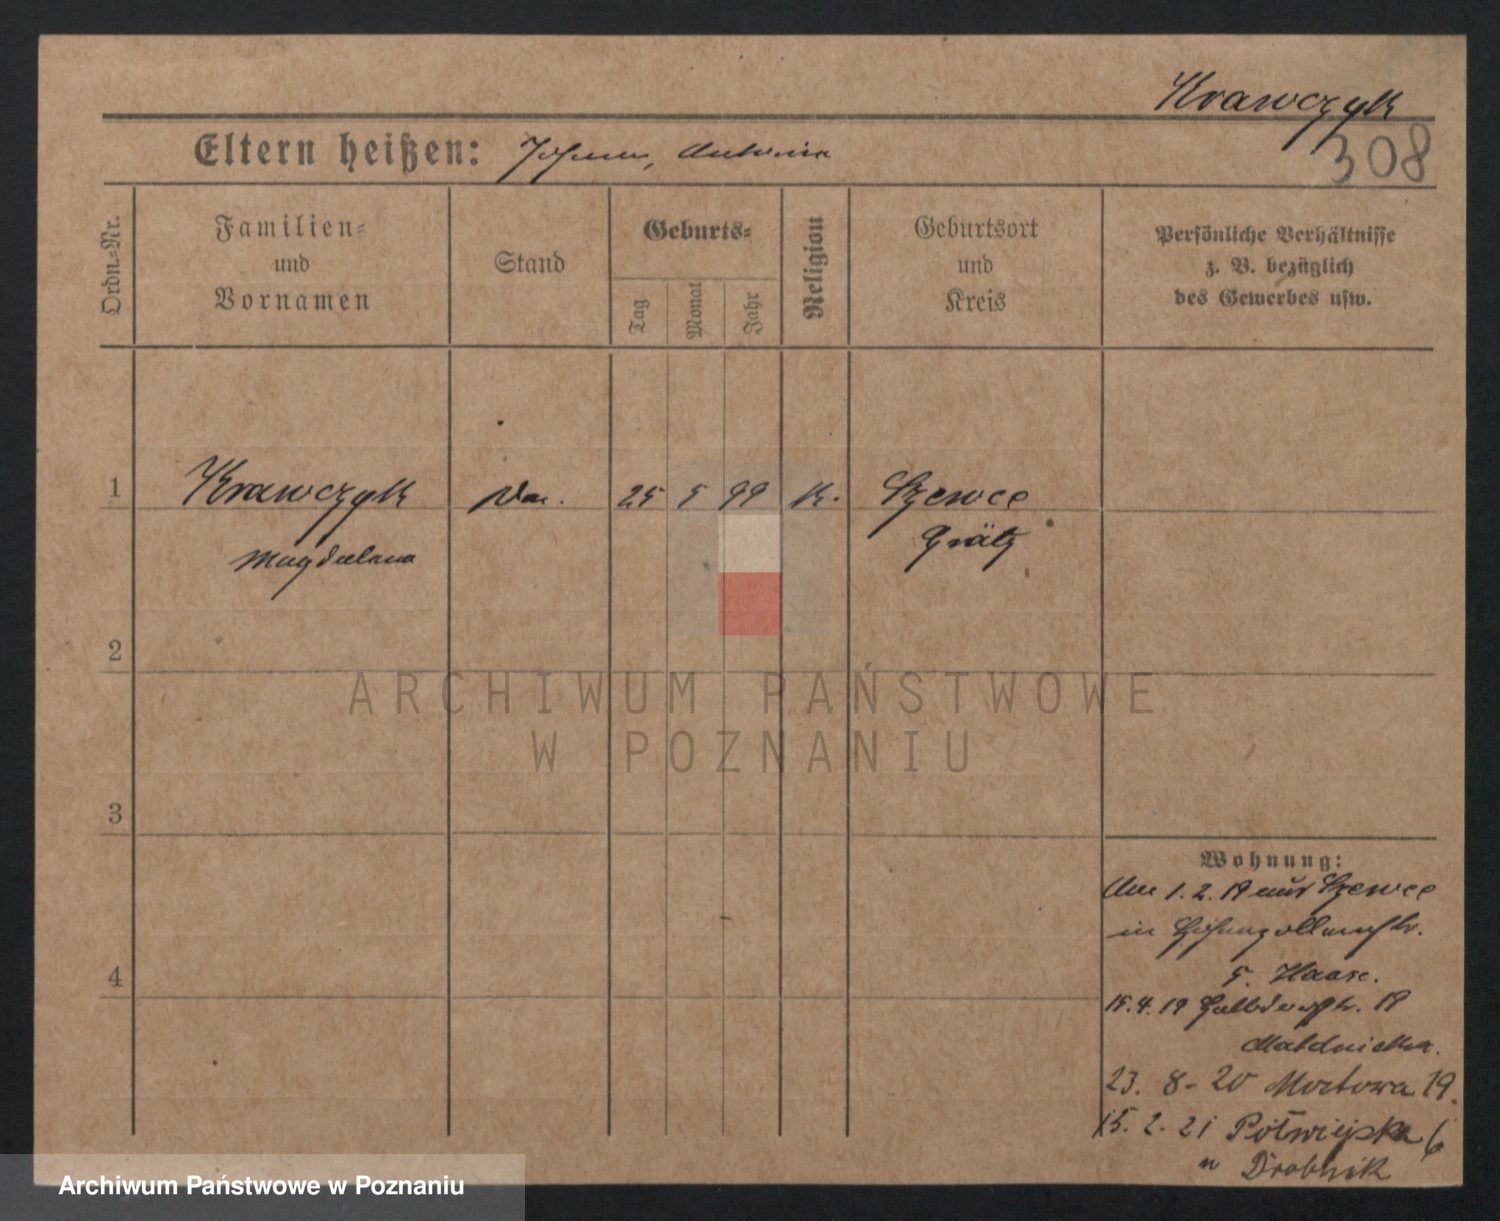 Krawczyk
308
Eltern heißen: Johann, Antonina
Ordn.-Nr.
Familien-
und
Vornamen
Stand
Geburts-
Tag
Monat
Jahr
Religion
Geburtsort
und
Kreis
Persönliche Verhältnisse
z. B. bezüglich
des Gewerbes usw.
1
Krawczyk
25 5 99 K.
Szewce
Magdalena
Grätz
2
ARCHIWUM PAŃSTWOWE
W POZNANIU
3
Wohnung:
1.2.19 aus Szewce
in Hohenzollernstr.
5. Haase.
15.4.19 Halbdorfstr. 19
23. 8-20 Mostowa 19.
15. 2. 21 Półwiejska 6
u Drobnik
4
Archiwum Państwowe w Poznaniu